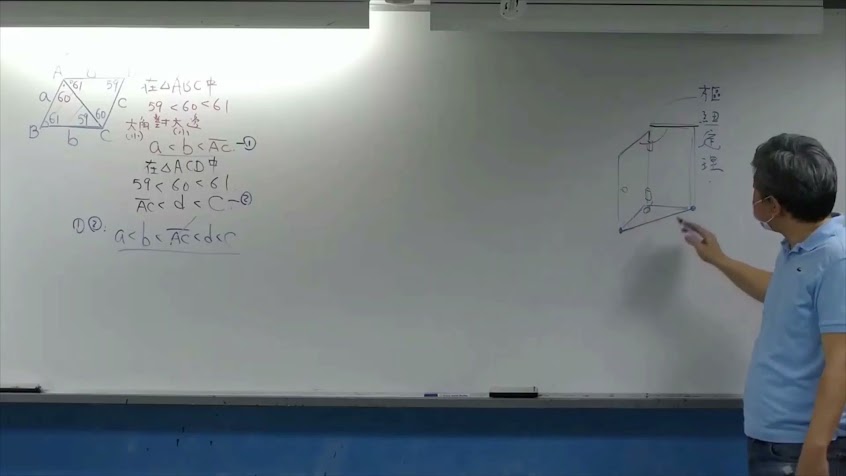 A d
61 59
a 60 C
61 59 60
B b C
在△ABC中
59<60<61
大角對大邊
(小) (小)
a<b<AC—①
在△ACD中
59<60<61
AC<d<C—②
①② a<b<AC<d<C
樞紐定理